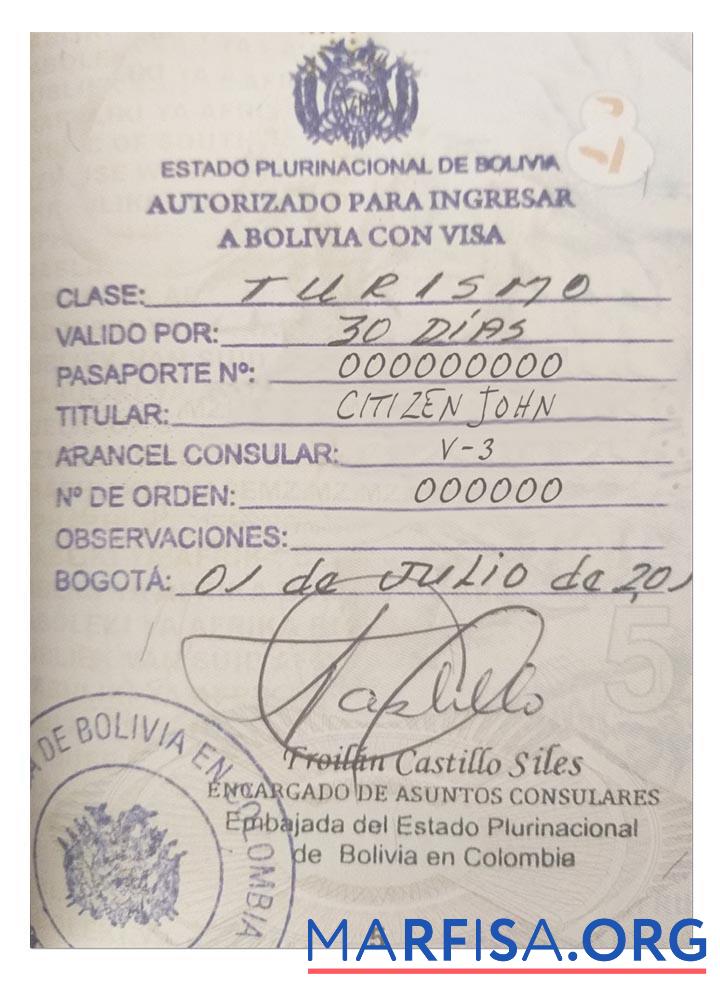 ESTADO PLURINACIONAL DE BOLIVIA
AUTORIZADO PARA INGRESAR
A BOLIVIA CON VISA
CLASE: TURISMO
VALIDO POR: 30 DÍAS
PASAPORTE Nº: 000000000
TITULAR: CITIZEN JOHN
ARANCEL CONSULAR: V-3
Nº DE ORDEN: 000000
OBSERVACIONES:
BOGOTÁ: 01 de JULIO de 201
Castillo
Froilán Castillo Siles
ENCARGADO DE ASUNTOS CONSULARES
Embajada del Estado Plurinacional
de Bolivia en Colombia
DE BOLIVIA EN COLOMBIA
5
MARFISA.ORG